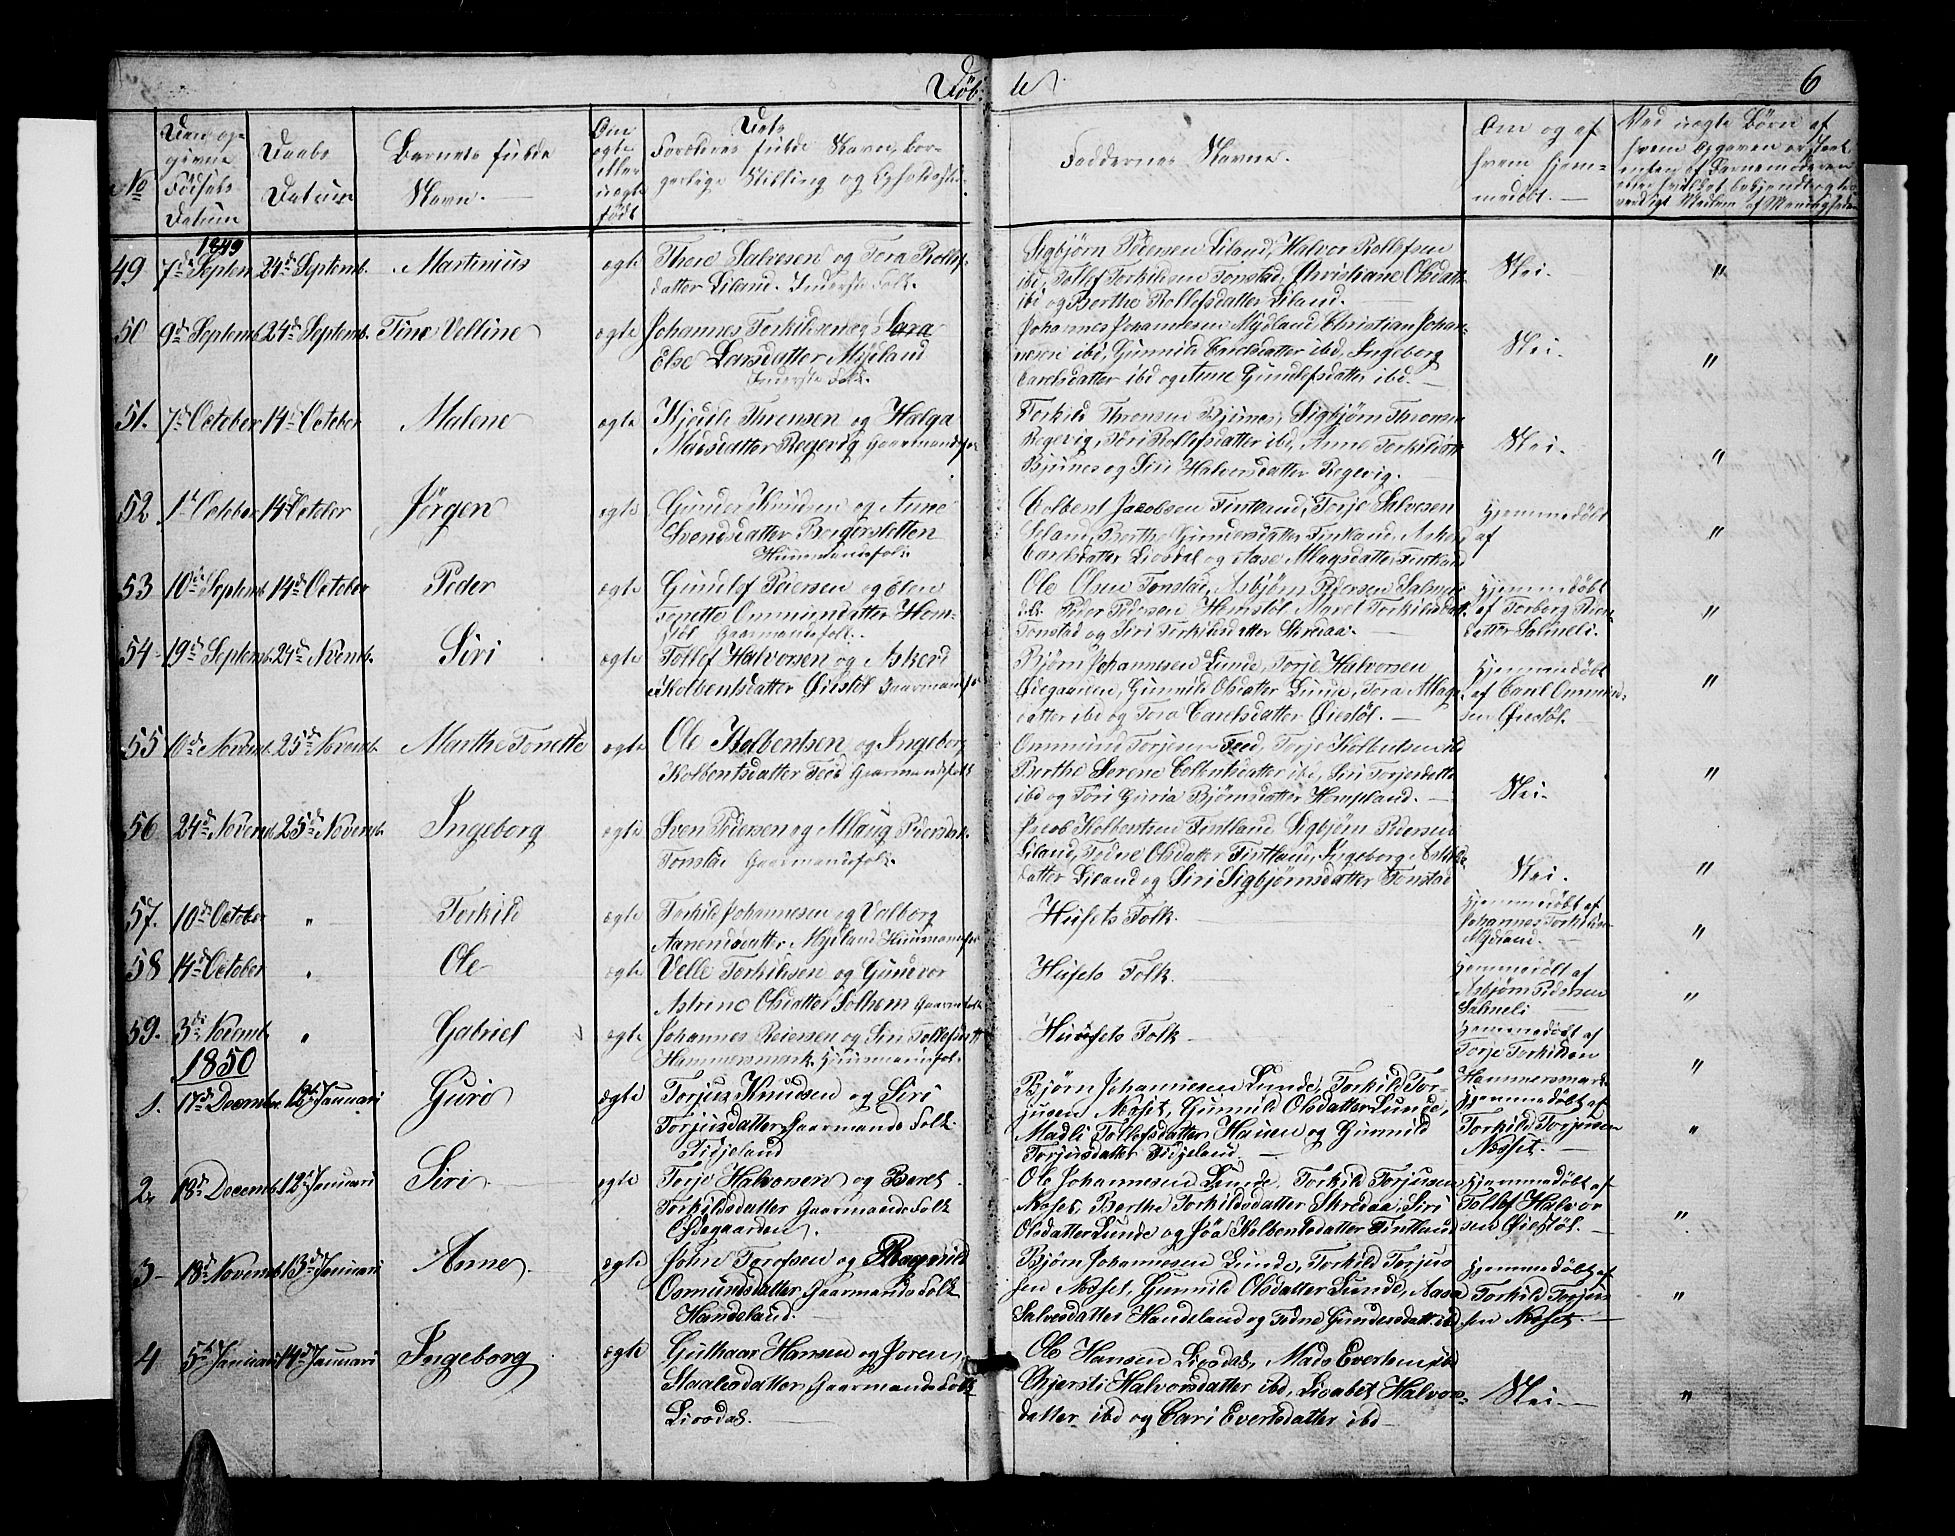 Døbte
6
No
Den op-
givne
Fødsels
Datum
Daabs
Datum
Barnets fulde
Navn.
Om
ægte
eller
uægte
født
Dets
Forældres fulde Navn, bor-
gerlige Stilling og Opholdsste
Faddernes Navne.
Om og af
hvem hjem-
medøbt.
Ved uægte Børn af
hvem Opgaven er
1849
49 7d Septem. 24d Septemb. Martinius ægte
Thore Salvesen og Tora Rollefs-
datter Liland. Inderste Folk.
Sigbjørn Pedersen Liland, Halvor Rollefsen
ibd, Tollef Torkildsen Tonstad, Christiane Olsdatt.
ibd og Berthe Rollefsdatter Liland.
Nei. "
50 9d Septemb. 24d Septemb. Tine Velline ægte
Johannes Torkildsen og Sara
Else Larsdatter Myland
Inderste Folk.
Johannes Johannesen Mydland, Christian Johan-
nesen ibd, Gunnild Carelsdatter ibd, Ingeborg
Carelsdatter ibd og Anne Gundlefsdatter ibd.
Nei. "
51. 7d October 14d October Malene ægte
Kjedel Thronsen og Helga
Madsdatter Regevig Gaarmandsfol
Torkild Thronsen Bjunes, Sigbjørn Thronsen
Regevig, Siri Rollefsdatter ibd, Anne Torkildsdatt.
Bjunes og Siri Halversdatter Regevig.
Nei. "
52 1d October 14d October Jørgen ægte
Gunder Knudsen og Anne
Svendsdatter Borgersletten
Huusmandsfolk
Colbent Jacobsen Fintland, Torje Salvesen
Seland, Berthe Gundersdatter Fintland, Askerd
Carelsdatter Liosdal og Aase Allagsdatter Fintland
Hjemmedøbt
af
"
53 10d Septemb. 14d October Peder ægte
Gundlef Pedersen og Elen
Tonette Ommundsdatter Hom-
støl Gaarmandsfolk.
Ole Olsen Tonstad, Asbjørn Pedersen Salmeli
ibd. Peder Pedersen Homstøl, Maret Torkildsdatt.
Tonstad og Siri Torkildsdatter Skredaa.
Hjemmedøbt
af Torborg Peders-
datter Salmeli.
"
54 19d Septemb. 24d Novemb. Siri ægte
Tollef Halvorsen og Askerd
Kolbentsdatter Øiestøl Gaarmandsfol
Bjørn Johannesen Lunde, Torje Halvorsen
Ødegaarden, Gunnild Olsdatter Lunde, Tora Allags-
datter ibd og Tora Carelsdatter Øiestøl.
Hjemmedøbt
af Carel Ommund-
sen Øiestøl.
"
55 10d Novemb. 25d Novemb. Marthe Tonette ægte
Ole Kolbentsen og Ingeborg
Kolbentsdatter Feed Gaarmandsfolk
Ommund Torjesen Feed, Torje Kolbentsen ibd
Berthe Serene Colbentsdatter ibd, Siri Torjesdatter
ibd og Guria Bjørnsdatter Hompland.
Nei. "
56 24d Novemb. 25d Novemb. Ingeborg ægte
Sven Pedersen og Allaug Pedersdat.
Tonstad Gaarmandsfolk.
Jacob Kolbentsen Fintland, Sigbjørn Pedersen
Liland, Todne Olsdatter Fintland, Ingeborg
datter Liland og Siri Sigbjørnsdatter Tonstad
Nei. "
57. 10d October " Torkild ægte
Torkild Johannesen og Valborg
Aanensdatter Myeland Huusmandsfol
Husets Folk.
Hjemmedøbt af
Johannes Torkildsen
Mydland.
"
58 14d October " Ole ægte
Velle Torkildsen og Gundvor
Astrine Olsdatter Solhem Gaarmdsfolk
Husets Folk
Hjemmedøbt af
Asbjørn Pedersen
Salmeli
"
59. 3d Novemb. " Gabriel ægte
Johannes Reiersen og Siri Tollefsdatt
Hammersmark Huusmandsfolk.
Huusets Folk
Hjemmedøbt af
Torje Torkildsen
Hammersmark
"
1850
1. 17d Decembr. 12d Januari Guro ægte
Torjus Knudsen og Siri
Torjusdatter, Gaarmands Folk.
Fidjeland
Bjørn Johannesen Lunde, Torkild Tor-
jusen Næset, Gunnild Olsdatter Lunde,
Madli Tollefsdatter Hauen og Gunnild
Torjusdatter Fidjeland.
Hjemmedøbt af
Torkild Torjusen
Næset.
"
2. 18d Decemb. 12d Januari Siri. ægte
Torje Halvorsen og Beret
Torkildsdatter Gaarmands Folk
Ødegaarden.
Ole Johannesen Lunde, Torkild Torjusen
Næset, Berthe Torkildsdatter Skredaa, Siri
Olsdatter Lunde og Kolbentsdatter Fintland
Hjemmedøbt af
Tollef Halvor
sen Øiestøl.
"
3 18d Novemb. 13d Januari Anne. ægte
John Torofsen og Ragnild
Osmundsdatter, Gaarmands Folk
Handeland.
Bjørn Johannesen Lunde, Torkild Torjus
sen Næset, Gunnild Olsdatter Lunde, Aasa
Salvesdatter Handeland og Todne Gundersdatt. ibd
Hjemmedøbt af
Torkild Torjus-
sen Næset.
"
4 5d Januari 14d Januari Ingeborg ægte
Guthaar Hansen og Joren
Staalesdatter, Gaarmands Folk
Liosdal.
Ole Hansen Liosdal, Mads Evertsen ibd
Chjersti Halvorsdatter ibd, Lisabet Halvors-
datter ibd og Cari Evertsdatter ibd
Nei. "